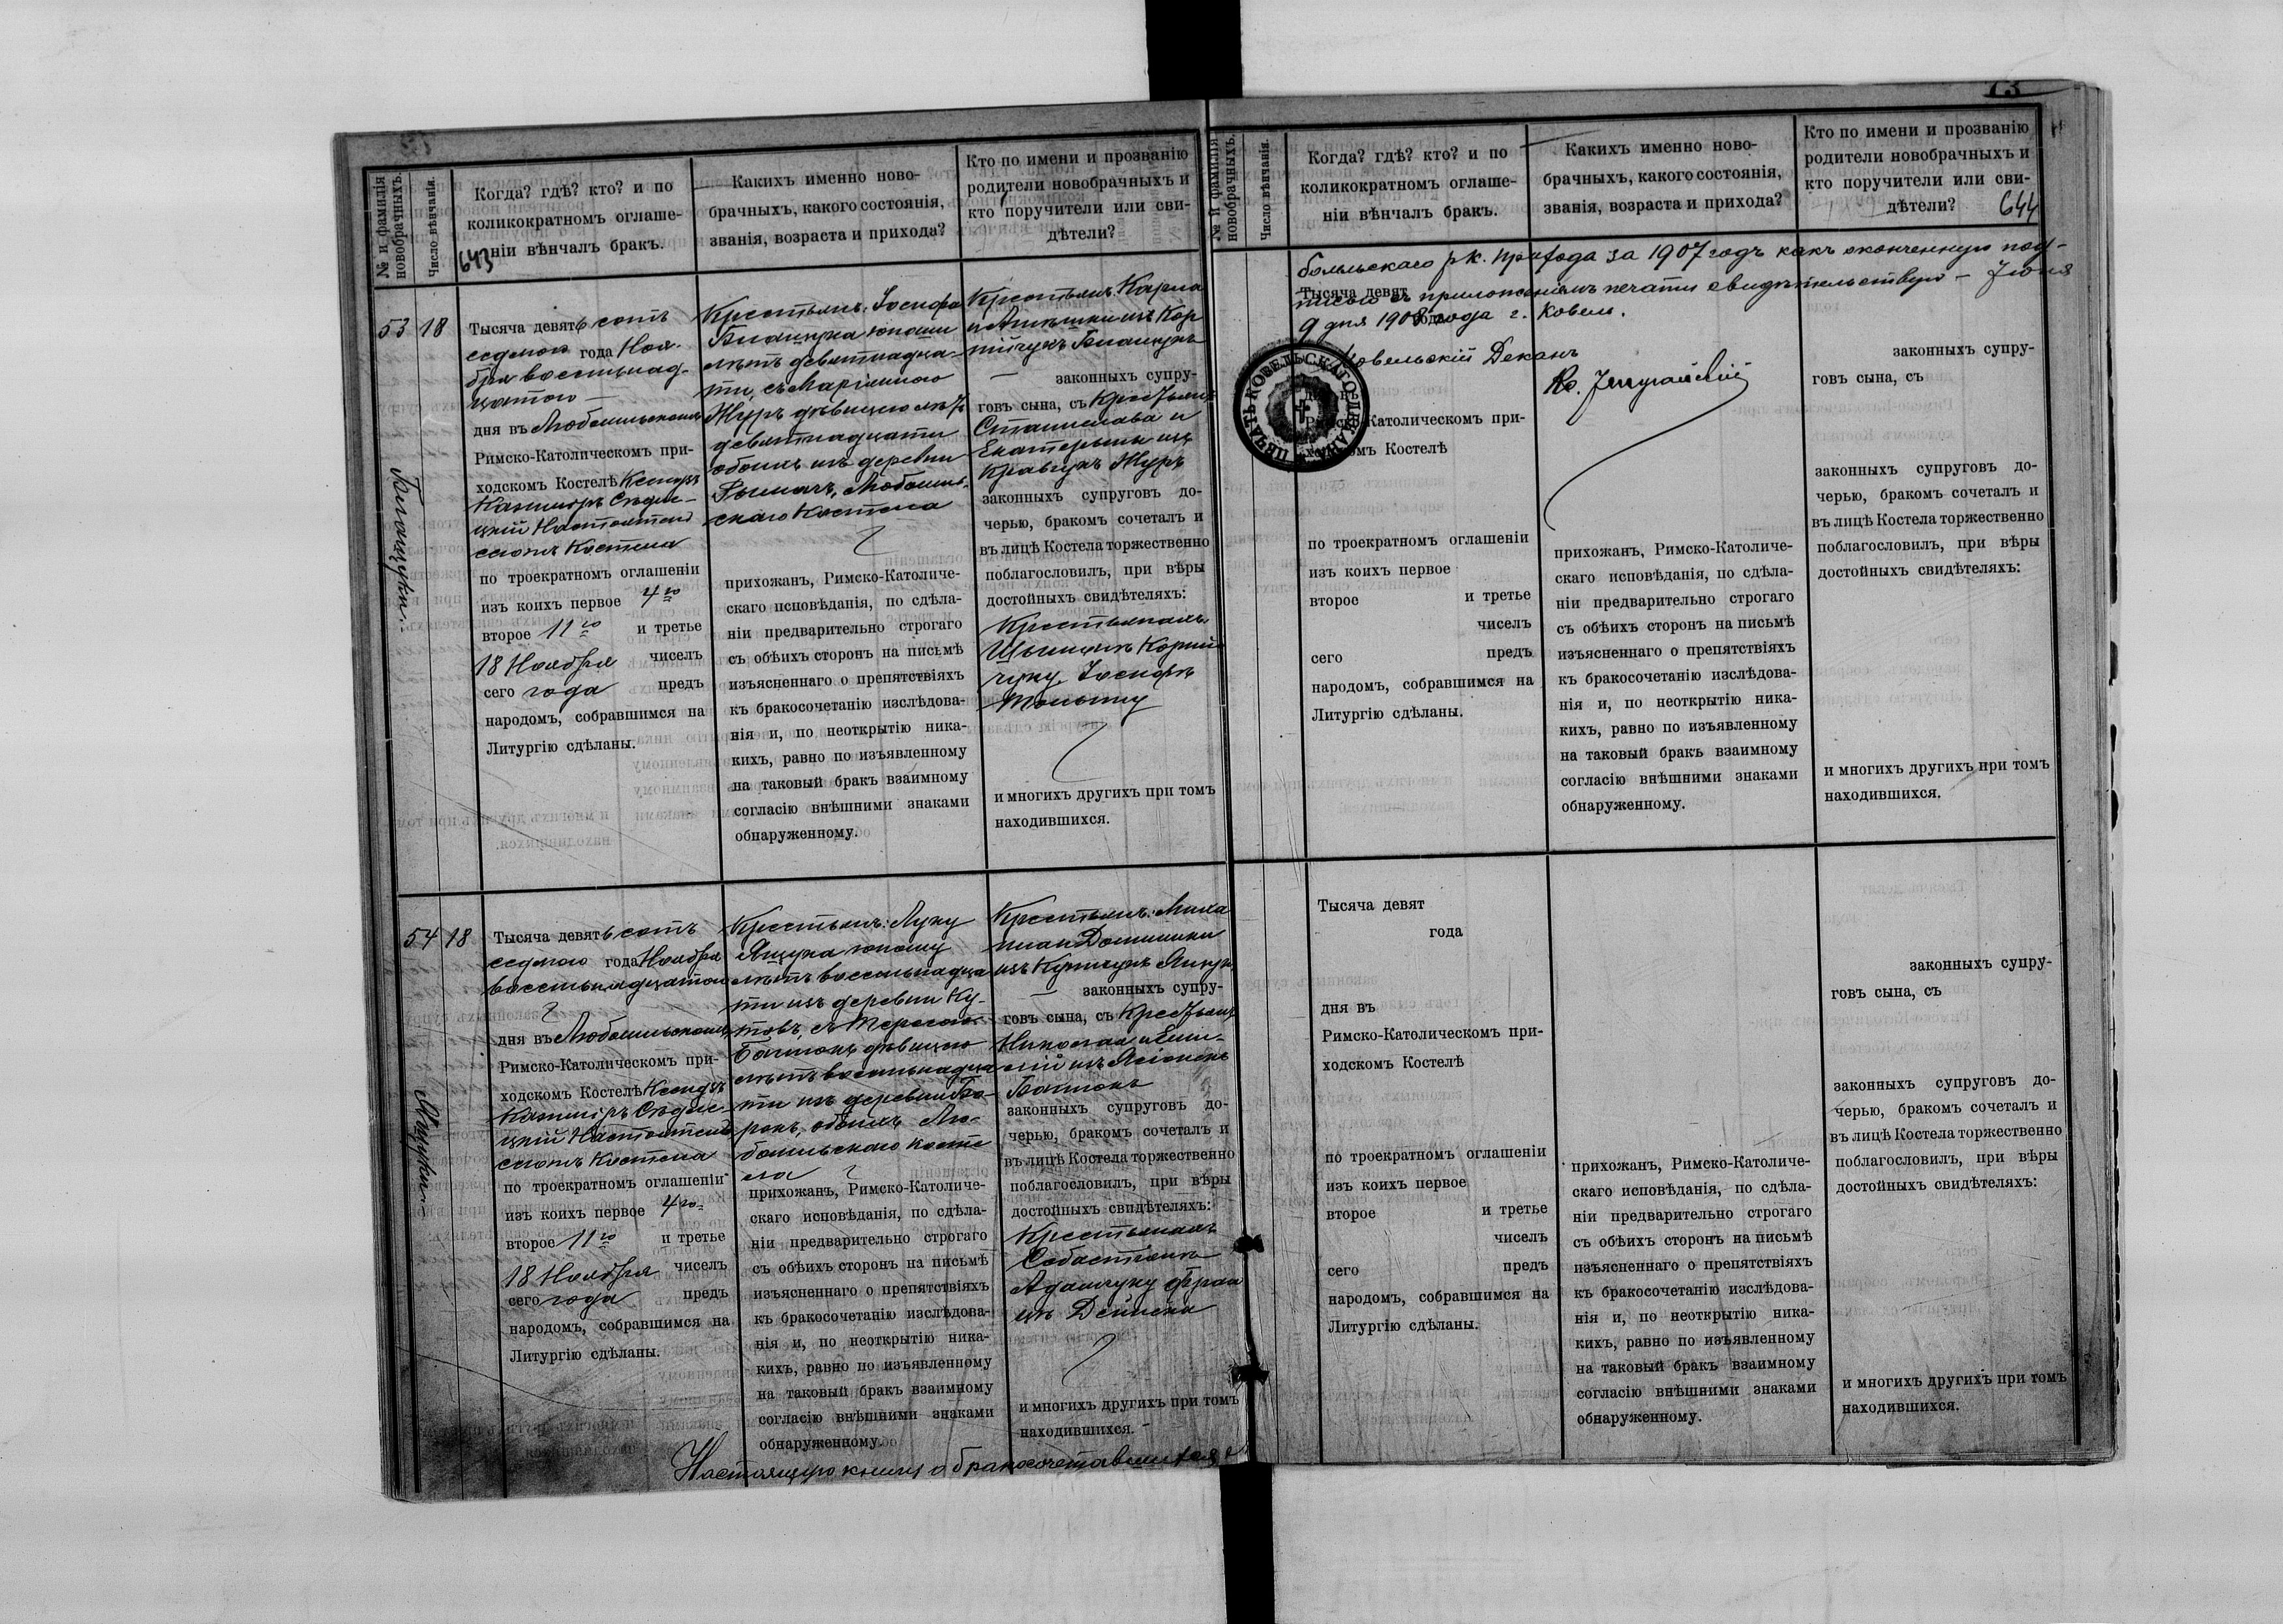 № и фамилія новобрачныхъ.
Число вѣнчанія.
Когда? гдѣ? кто? и по
коликократномъ оглаше-
ніи вѣнчалъ бракъ.
643
Какихъ именно ново-
брачныхъ, какого состоянія,
званія, возраста и прихода?
Кто по имени и прозванію
родители новобрачныхъ и
кто поручители или сви-
дѣтели?
53
18
Тысяча девятьсотъ
седмого года Ноя-
бря восемнад-
цатого
дня въ Любомльскомъ
Римско-Католическомъ при-
ходскомъ Костелѣ Ксендзъ
Казимиръ
Настоятель
сего Костела
по троекратномъ оглашеніи
изъ коихъ первое 4го
второе 11го и третье
18 Ноября чиселъ
сего года предъ
народомъ, собравшимся на
Литургію сдѣланы.
Крестьянъ: Іосифа
юношу
лѣтъ девятнадца-
ти, съ Маріанною
Журъ дѣвицею лѣтъ
девятнадцати
обоихъ изъ деревни
Рымачъ, Любомль-
скаго Костела
прихожанъ, Римско-Католиче-
скаго исповѣданія, по сдѣла-
ніи предварительно строгаго
съ обѣихъ сторонъ на письмѣ
изъясненнаго о препятствіяхъ
къ бракосочетанію изслѣдова-
нія и, по неоткрытію ника-
кихъ, равно по изъявленному
на таковый бракъ взаимному
согласію внѣшними знаками
обнаруженному.
Крестьянъ: Карла
изъ Кор-
нійчукъ
законныхъ супру-
говъ сына, съ Крестьянъ
Станислава и
Екатерины изъ
Кравчукъ Журъ
законныхъ супруговъ до-
черью, бракомъ сочеталъ и
въ лицѣ Костела торжественно
поблагословилъ, при вѣры
достойныхъ свидѣтеляхъ:
Крестьянахъ
Корній-
чуку, Іосифѣ
и многихъ другихъ при томъ
находившихся.
54
18
Тысяча девятьсотъ
седмого года Ноября
восемнадцатого
дня въ Любомльскомъ
Римско-Католическомъ при-
ходскомъ Костелѣ Ксендзъ
Казимиръ
Настоятель
сего Костела
по троекратномъ оглашеніи
изъ коихъ первое 4го
второе 11го и третье
18 Ноября чиселъ
сего года предъ
народомъ, собравшимся на
Литургію сдѣланы.
Крестьянъ: Луку
Яцука юношу
лѣтъ восемнадца-
ти изъ деревни Ку-
товъ, съ Тересою
дѣвицею
лѣтъ восемнадца-
ти изъ деревни Бо-
рокъ, обоихъ Лю-
бомльскаго Косте-
ла
прихожанъ, Римско-Католиче-
скаго исповѣданія, по сдѣла-
ніи предварительно строгаго
съ обѣихъ сторонъ на письмѣ
изъясненнаго о препятствіяхъ
къ бракосочетанію изслѣдова-
нія и, по неоткрытію ника-
кихъ, равно по изъявленному
на таковый бракъ взаимному
согласію внѣшними знаками
обнаруженному.
Крестьянъ: Миха-
ила и Доминики
изъ
законныхъ супру-
говъ сына, съ Крестьянъ
Николая и
изъ
законныхъ супруговъ до-
черью, бракомъ сочеталъ и
въ лицѣ Костела торжественно
поблагословилъ, при вѣры
достойныхъ свидѣтеляхъ:
Крестьянахъ
Себастіанѣ
Адамчуку Фран-
цѣ
и многихъ другихъ при томъ
находившихся.
Настоящую книгу о бракосочетавшихся
73
№ и фамилія новобрачныхъ.
Число вѣнчанія.
Когда? гдѣ? кто? и по
коликократномъ оглаше-
ніи вѣнчалъ бракъ.
Какихъ именно ново-
брачныхъ, какого состоянія,
званія, возраста и прихода?
Кто по имени и прозванію
родители новобрачныхъ и
кто поручители или сви-
дѣтели?
644
бомльскаго р.к. прихода за 1907 годъ какъ оконченную под-
Тысяча девят
писью съ приложеніемъ печати свидѣтельствую – Іюня
9 дня 1908 года г. Ковель.
Ковельскій Деканъ
ПЕЧАТЬ КОВЕЛЬСКАГО ДЕКАНА
Римско-Католическомъ при-
ходскомъ Костелѣ
по троекратномъ оглашеніи
изъ коихъ первое
второе и третье
чиселъ
сего предъ
народомъ, собравшимся на
Литургію сдѣланы.
прихожанъ, Римско-Католиче-
скаго исповѣданія, по сдѣла-
ніи предварительно строгаго
съ обѣихъ сторонъ на письмѣ
изъясненнаго о препятствіяхъ
къ бракосочетанію изслѣдова-
нія и, по неоткрытію ника-
кихъ, равно по изъявленному
на таковый бракъ взаимному
согласію внѣшними знаками
обнаруженному.
законныхъ супру-
говъ сына, съ
законныхъ супруговъ до-
черью, бракомъ сочеталъ и
въ лицѣ Костела торжественно
поблагословилъ, при вѣры
достойныхъ свидѣтеляхъ:
и многихъ другихъ при томъ
находившихся.
Тысяча девят
года
дня въ
Римско-Католическомъ при-
ходскомъ Костелѣ
по троекратномъ оглашеніи
изъ коихъ первое
второе и третье
чиселъ
сего предъ
народомъ, собравшимся на
Литургію сдѣланы.
прихожанъ, Римско-Католиче-
скаго исповѣданія, по сдѣла-
ніи предварительно строгаго
съ обѣихъ сторонъ на письмѣ
изъясненнаго о препятствіяхъ
къ бракосочетанію изслѣдова-
нія и, по неоткрытію ника-
кихъ, равно по изъявленному
на таковый бракъ взаимному
согласію внѣшними знаками
обнаруженному.
законныхъ супру-
говъ сына, съ
законныхъ супруговъ до-
черью, бракомъ сочеталъ и
въ лицѣ Костела торжественно
поблагословилъ, при вѣры
достойныхъ свидѣтеляхъ:
и многихъ другихъ при томъ
находившихся.